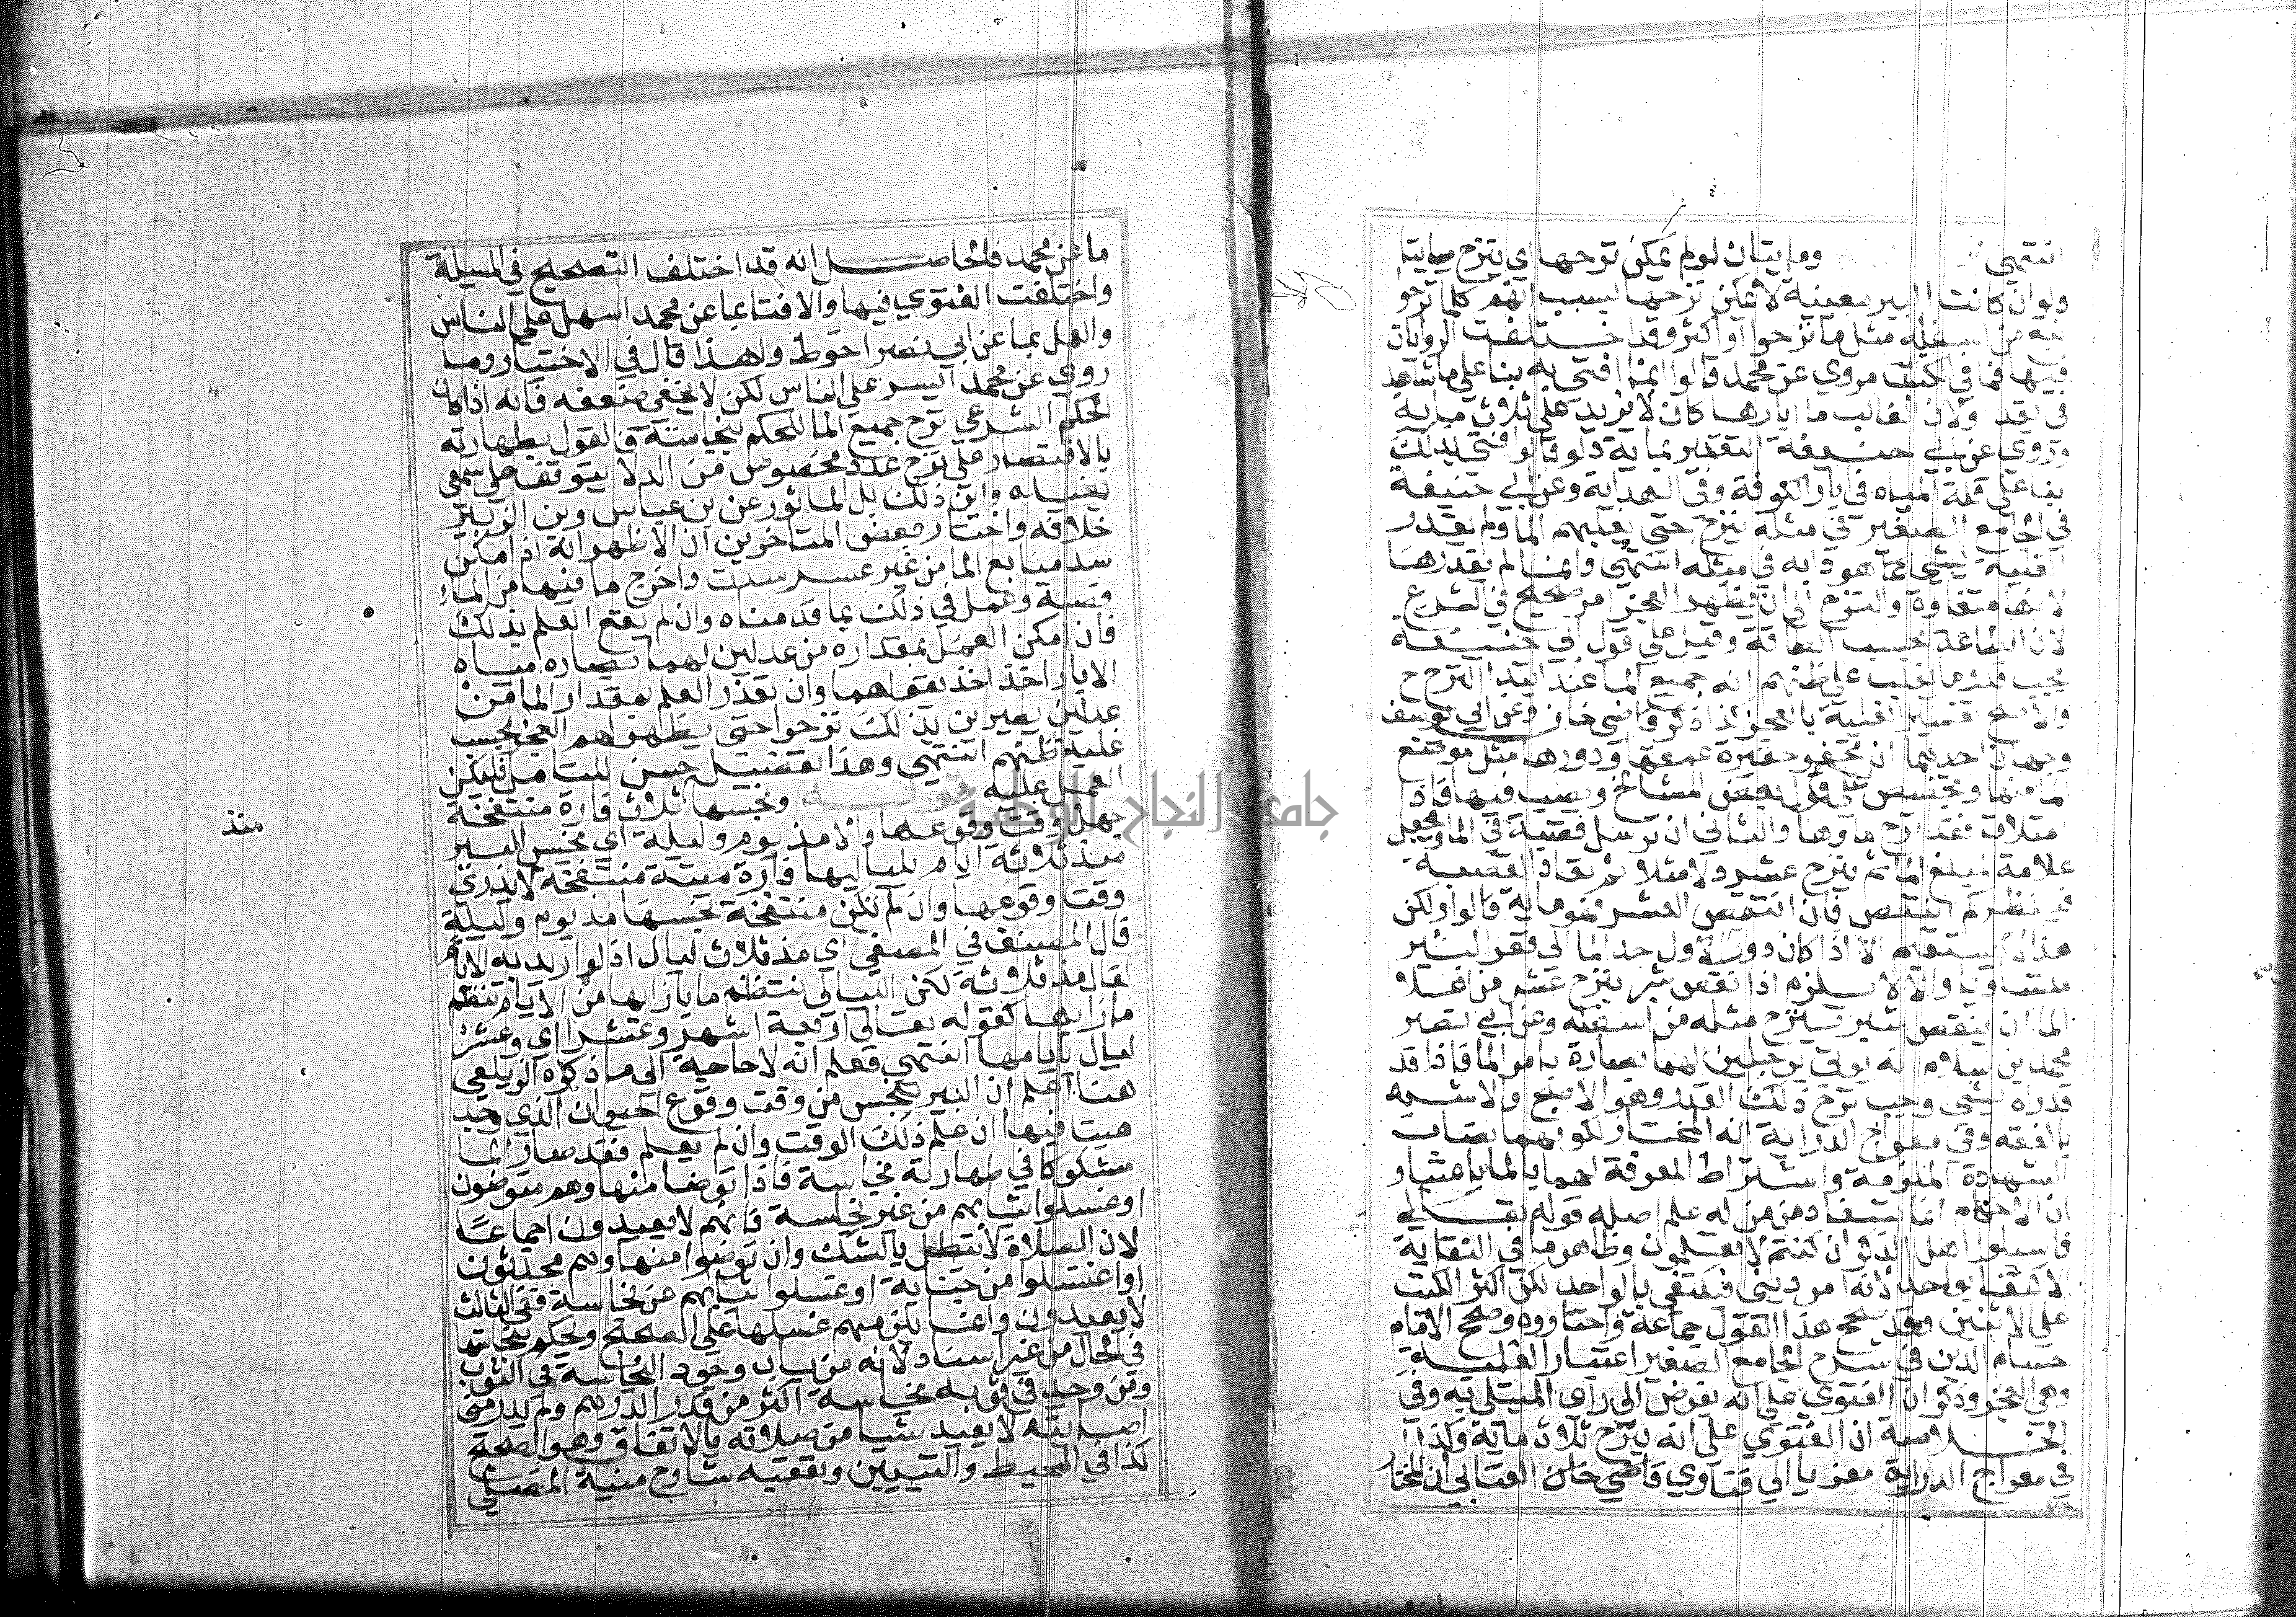 انتهى وما يتان لو لم يمكن نزحها اي ينزح مايتا
دلو ان كانت البير معينة لا يمكن نزحها بسبب انهم كلما نزحو
نبع من اسفله مثل ما نزحوا او اكثر وقد اختلفت الروايات
فيها فما في الكتاب مروي عن محمد قالوا انما افتى به بنا على ما شاهد
في بغداد لان الغالب ما ابارها كان لا يزيد على ثلاث ماية
وروي عن ابي حنيفة التقدير بماية دلو قالوا افتى بذلك
بنا على قلة المياه في ابار الكوفة وفي الهداية وعن ابي حنيفة
في الجامع الصغير في مثله ينزح حتى يغلبهم الما ولم يقدر
الغلبة بشي كما هو دابه في مثله انتهى وانما لم يقدرها
لانها متفاوتة والنزح الى ان يظهر العجز امر صحيح في الشرع
لان الطاعة بحسب الطاقة وقيل على قول ابي حنيفة
يجب فيما يغلب على ظنهم انه جميع الما عند ابتدا النزح ح
والاصح تفسير الغلبة بالعجز كذا ذكر قاضي خان وعن ابي يوسف
وجهان احدهما ان تحفر حفيرة عمقها ودورها مثل موضع
الما منها وتجصص على قول بعض المشايخ ويصب فيها فاذا
امتلات فقد نزح ماوها والثاني ان ترسل قصبة في الما ويجعل
علامة لمبلغ الما ثم ينزح عشر دلا مثلا ثم تعاد القصبة
فينظر كم انتقص فان انتقص العشر فهو ماية قالوا ولكن
هذا لا يستقيم الا اذا كان دور الاول حد الما الى قعر البير
متساويا والا لا يلزم اذا نقص شبر بنزح عشر من اعلا
الما ان ينقص شبر بنزح مثله من اسفله وعن ابي نصر
محمد بن سلام انه يوتى برجلين لهما بصارة بامر الما فاذا قد
قدراه بشي وجب نزح ذلك القدر وهو الاصح والاشبه
بالفقه وفي معراج الدراية انه المختار لكونهما نصاب
الشهادة الملزمة واشتراط المعرفة لهما بالما باعتبار
ان الاحكام انما تستفاد ممن له علم اصله قوله تعالى
فاسيلوا اهل الذكر ان كنتم لا تعلمون وظاهر ما في النقاية
لاكتفا بواحد لانه امر ديني فيكتفى بالواحد لكن اكثر الكتب
على الاثنين وقد صحح هذا القول جماعة واختاروه وصحح الامام
حسام الدين في شرح الجامع الصغير اعتبار الغلبة
وهي العجز وذكر ان الفتوى على انه يفوض الى راي المبتلى به وفي
الخلاصة ان الفتوى على انه ينزح ثلاث ماية وكذا
في معراج الدراية معزيا الى فتاوي قاضي خان العتابي ان المختار
ما عن محمد فالحاصل انه قد اختلف التصحيح في المسيلة
واختلفت الفتوى فيها والافتا بما عن محمد اسهل على الناس
والعمل بما عن ابي نصر احوط ولهذا قال في الاختيار وما
روي عن محمد ايسر على الناس لكن لا يخفى ضعفه فانه اذا كان
الحكم الشرعي نزح جميع الما للحكم بنجاسته فالقول بطهارته
بالاقتصار على نزح عدد مخصوص من الدلا يتوقف على سمعي
يفيده واين ذلك بل الماثور عن بن عباس وبن الزبير
خلافه واختار بعض المتاخرين ان الاظهر انه اذا امكن
سد منابع الما من غير عسر سدت واخرج ما فيها من الماء
قصبة وعمل في ذلك بما قدمناه وان لم يقع العلم بذلك
فان امكن العمل بمقداره من عدلين لهما بصارة بمياه
الابار اخذ اخذ بقولهما وان تعذر العلم بمقدار الما من
عدلين بصيرين بذلك نزحوا حتى يظهر لهم العجز بحسب
غلبة ظنهم انتهى وهذا تفصيل حسن للمتامل فليكن
العمل عليه قوله ونجسها ثلاث فارة منتفخة
جهل وقت وقوعها والا مذ يوم وليلة اي نجس البير
منذ ثلاثة ايام بلياليها فارة ميتة منتفخة لا يدري
وقت وقوعها وان لم تكن منتفخة نجسها مذ يوم وليلة
قال المصنف في المصفى اي مذ ثلاث ليال اذ لو اريد به الايام
لقال مذ ثلاثة لكن الليالي تنتظم ما بازايها من الايام تنتظم
مازايها كقوله تعالى اربعة اشهر وعشرا اي وعشر
ليال بايامها انتهى فعلم انه لا حاجة الى ما ذكره الزيلعي
هنا اعلم ان البير تنجس من وقت وقوع الحيوان الذي وجد
ميتا فيها ان علم ذلك الوقت وان لم يعلم فقد صار الما
مشكوكا في طهارته نجاسة فاذا توضا منها وهم متوضون
او غسلوا ثيابهم من غير نجاسة فانهم لا يعيدون اجماعا
لان الصلاة لا تبطل بالشك وان توضوا منها وهم محدثون
او اغتسلوا من جنابة او غسلوا ثيابهم عن نجاسة ففي الثالث
لا يعيدون وانما يلزمهم غسلها على الصحيح ويحكم بنجاستها
في الحال من غير اسناد لانه من باب وجود النجاسة في الثوب
ومن وجد في ثوبه نجاسة اكثر من قدر الدرهم ولم يدر متى
اصابته لا يعيد شيا من صلاته بالاتفاق وهو الصحيح
كذا في المحيط والتبيين وتعقبه شارح منية المصلي
منذ
جامعة النجاح الوطنية